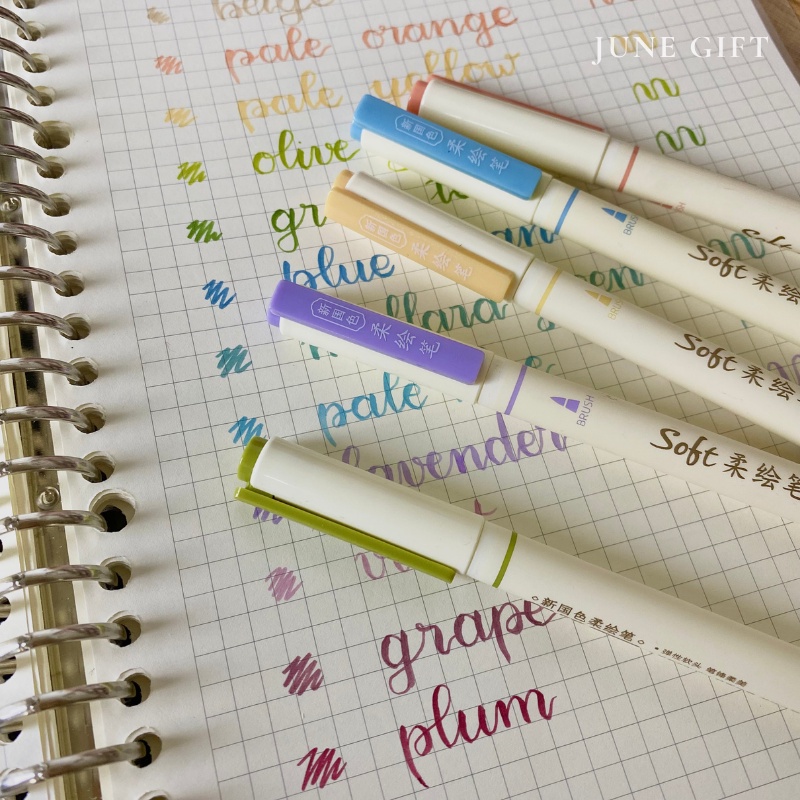 JUNE GIFT
beige
pale orange
pale yellow
olive
blue
pale
lavender
grape
plum
新国色 柔绘笔
BRUSH
Soft 柔绘
新国色 柔绘笔
Soft 柔绘
新国色 柔绘笔
BRUSH
Soft 柔绘笔
新国色柔绘笔